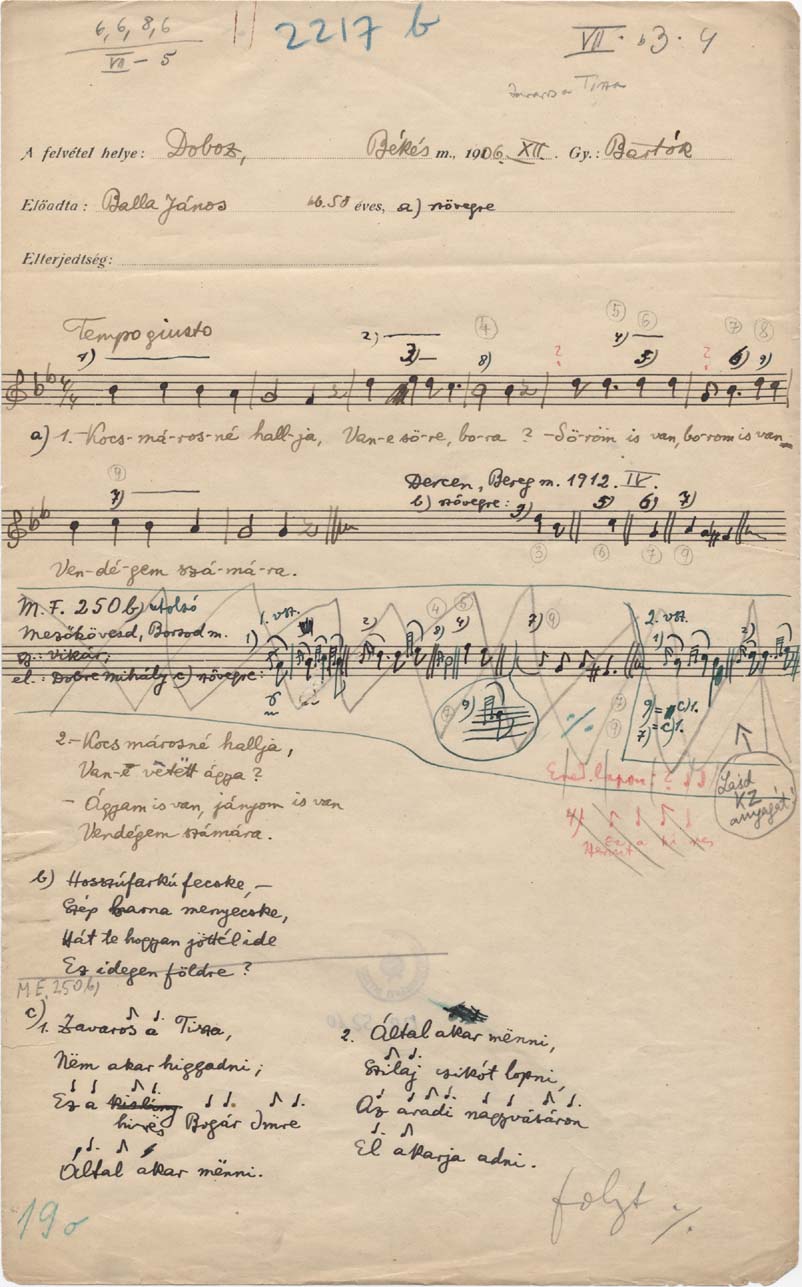 6, 6, 8, 6
VII - 5
2217 b
VII. b3. 4
Zavaros a Tisza
A felvétel helye: Doboz, Békés m., 1906. XII. Gy.: Bartók
Előadta: Balla János kb. 50 éves, a) szövegre
Elterjedtség:
Tempo giusto
1) 2) 3) 8) 4) 5) 6) 9)
④ ⑤ ⑥ ⑦ ⑧
? ?
4/4
a) 1. Kocs-má-ros-né hall-ja, Van-e sö-re, bo-ra? - Sö-röm is van, bo-rom is van
⑨
7)
Dercen, Bereg m. 1912. IV.
b) szövegre: 9) 5) 6) 7)
③ ⑥ ⑦ ⑨
Ven-dé-gem szá-má-ra.
M. F. 250b) utolsó
Mezőkövesd, Borsod m.
gy.: Vikár;
el.: Dobre Mihály c) szövegre:
1. vsz. 1) 2) 8) 4) 7)
④ ⑨
2. vsz. 1) 2)
9)
9) = c) 1.
7) = c) 1.
2. Kocsmárosné hallja,
Van-ë vetëtt ágya?
- Ágyam is van, jányom is van
Vendégem számára.
Ered. lapon: ?
4)
Ez a hí res
Lásd
KZ
anyagát!
b) Hosszúfarkú fecske, -
Szép barna menyecske,
Hát te hogyan jöttél ide
Ez idegen földre?
M. F. 250b)
c) 1. Zavaros a Tisza,
Nëm akar higgadni;
Ez a
hirës Bogár Imre
Által akar mënni.
2. Által akar mënni,
Szilaj csikót lopni,
Az aradi nagyvásáron
El akarja adni.
folyt ./.
19